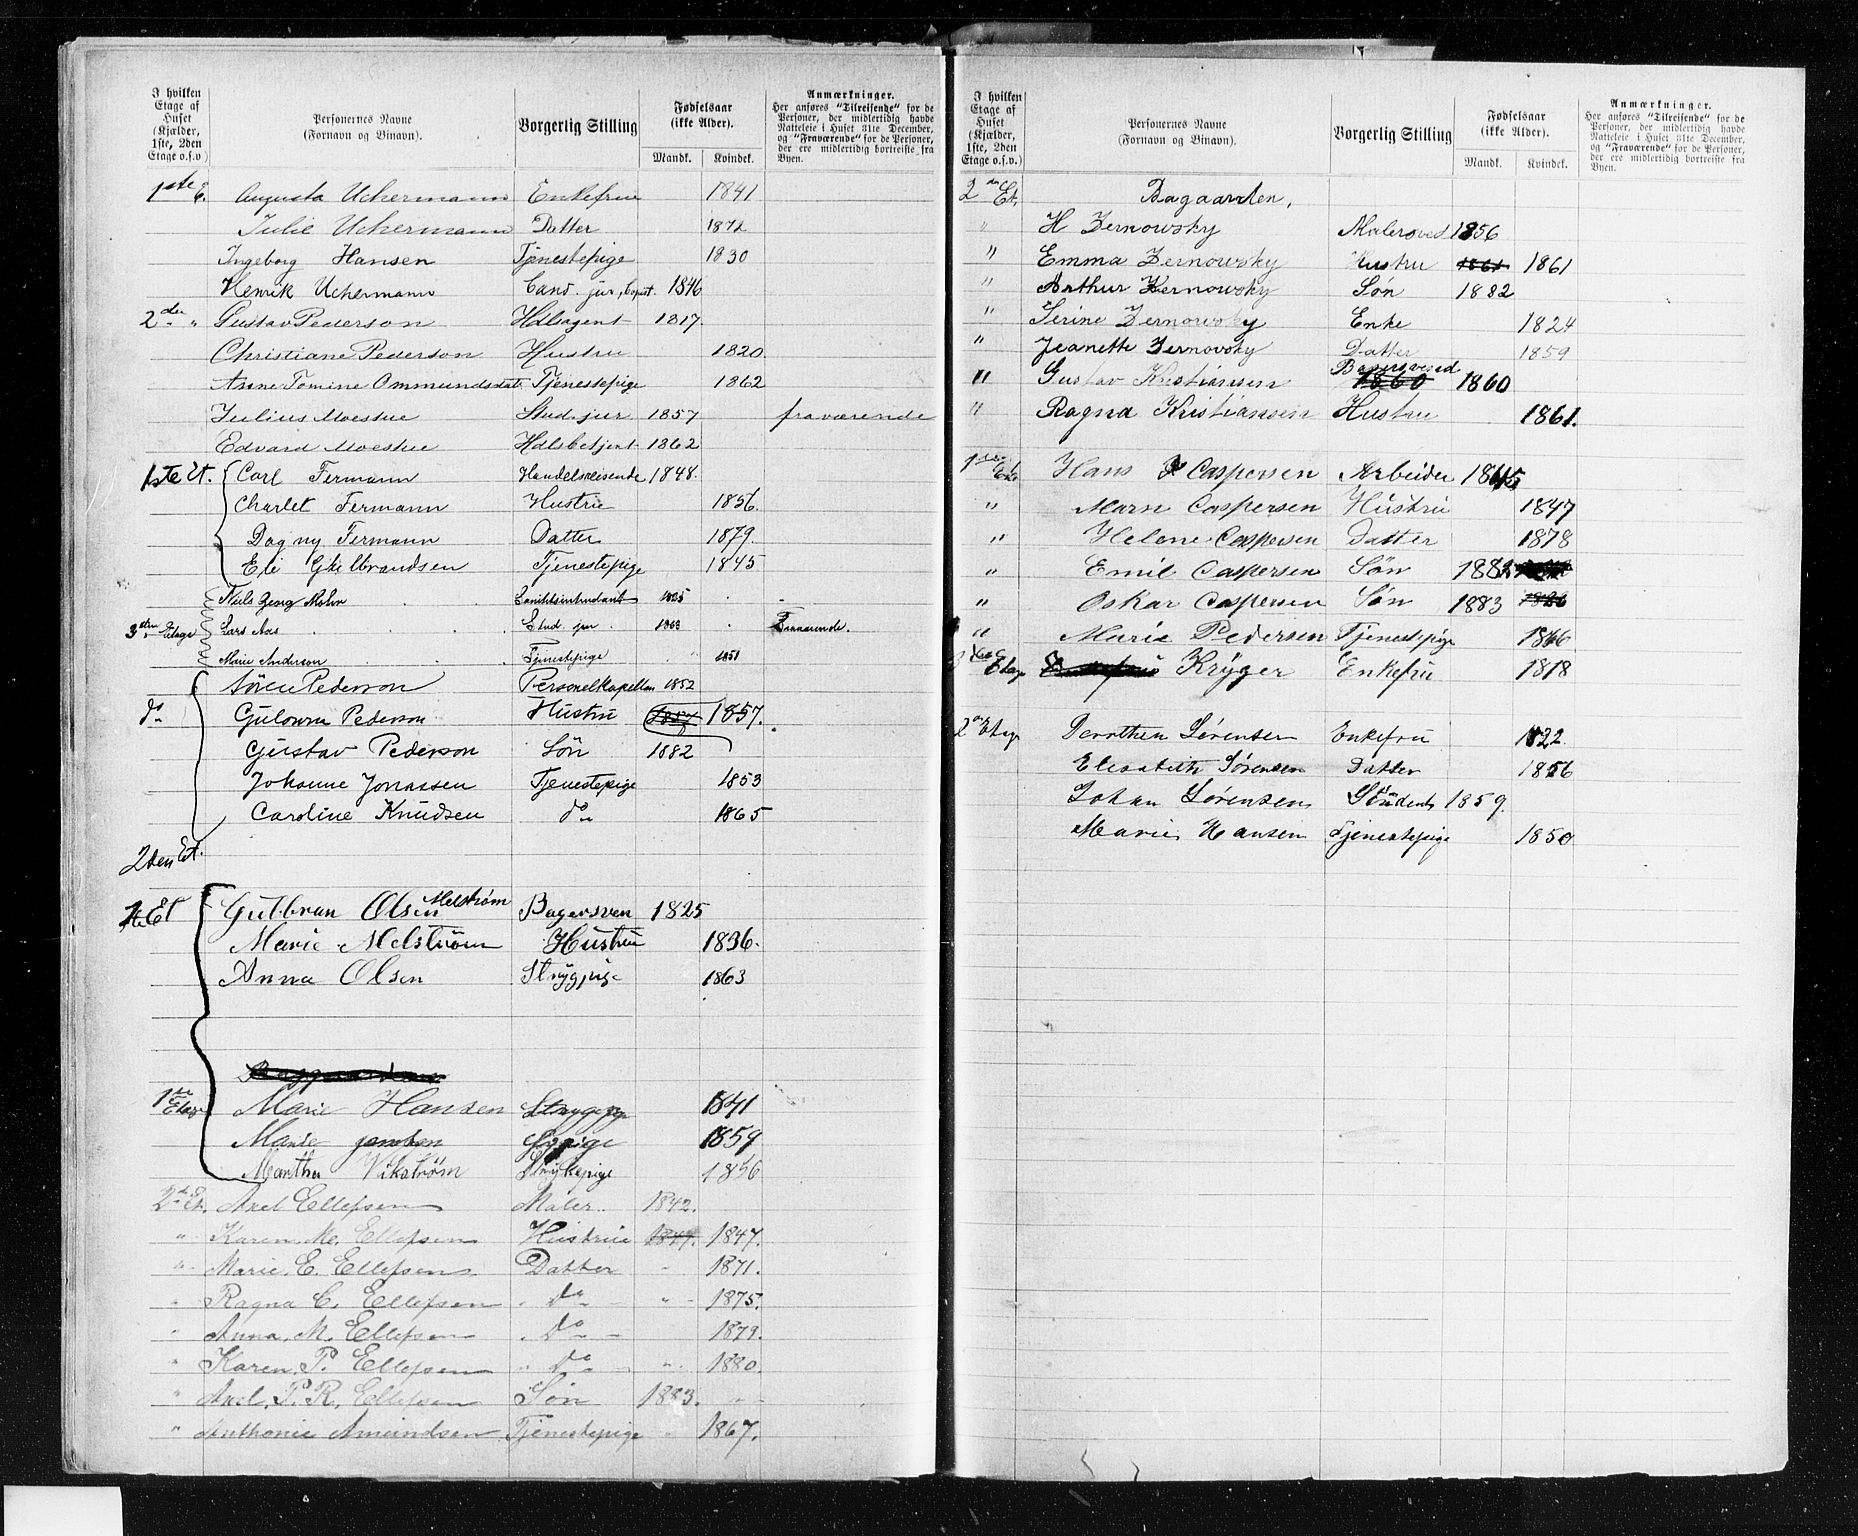 I hvilken Etage af Huset (Kjælder, 1ste, 2den Etage o.s.v.)
Personernes Navne (Fornavn og Binavn).
Borgerlig Stilling
Fødselsaar (ikke Alder).
Mandk. Kvindek.
Anmærkninger.
Her anføres "Tilreisende" for de Personer, der midlertidig havde Natteleie i Huset 31te December, og "Fraværende" for de Personer, der ere midlertidig bortreiste fra Byen.
1ste E. Augusta Uchermann Enkefrue 1841
Julie Uchermann Datter 1872
Ingeborg Hansen Tjenestepige 1830
Henrik Uchermann Cand. jur, Copist. 1846
2den " Gustav Pederson Hdlsagent 1817.
Christiane Pederson Hustru 1820
Anne Tomine Ommundsdat. Tjenestepige 1862
Julius Moestue Stud. jur 1857 fraværende
Edvard Moestue Hdlsbetjent 1862
1ste Et. Carl Fermann Handelsreisende 1848.
Charlet Fermann Hustru 1856.
Dagny Fermann Datter 1879.
Eli Gulbrandsen Tjenestepige 1845
Niels Georg Malm 1825
3die Etage Lars Aas Stud. jur 1863 Fraværende.
Marie Anderson Tjenestepige 1851
Søren Pederson Personelkapellan 1852
do Gulowna Pederson Hustru 1857 1857.
Gustav Pederson Søn 1882
Johanne Jonassen Tjenestepige 1853
Caroline Knudsen do 1865
2den Et.
1ste Et Gulbran Olsen Melstrøm Bagersven 1825
Marie Melstrøm Hustru 1836.
Anna Olsen Strygpige 1863
1ste Etage Marie Hansen 1841
Jensen Sypige 1859
Martha Vikstrøm Strykepige 1856
2den Et. Axel Ellefsen Maler.. 1842.
" Karen M. Ellefsen Hustrue 1847. 1847.
" Marie. E. Ellefsen Datter " 1871.
" Ragna C. Ellefsen " do " 1875.
" Anna. M. Ellefsen " do 1879.
" Karen. P. Ellefsen " do " 1880.
" Axel. P. R. Ellefsen Søn 1883. "
" Anthonie Amundsen Tjenestepige " 1867.
I hvilken Etage af Huset (Kjælder, 1ste, 2den Etage o.s.v.)
Personernes Navne (Fornavn og Binavn).
Borgerlig Stilling
Fødselsaar (ikke Alder).
Mandk. Kvindek.
Anmærkninger.
Her anføres "Tilreisende" for de Personer, der midlertidig havde Natteleie i Huset 31te December, og "Fraværende" for de Personer, der ere midlertidig bortreiste fra Byen.
2den Et. Bagaarden.
" H Zernowsky Malersved 1856
" Emma Zernowsky Hustru 1861 1861
" Arthur Zernowsky Søn 1882
" Serine Zernowsky Enke 1824
" Jeanette Zernovsky Datter 1859
" Gustav Kristiansen 1860 1860
" Ragna Kristiansen Hustru 1861.
1ste Et. Hans Caspersen Arbeider 1845
" Maren Caspersen Hustru 1847
" Helene Caspersen Datter 1878
" Emil Caspersen Søn 1882
" Oskar Caspersen Søn 1883
" Marie Pedersen Tjenestepige 1866
Etage Krüger Enkefru 1818
2den Etage Dorothea Sørensen Enkefru 1822.
Elisabeth Sørensen Datter 1856
Johan Sørensen Student 1859.
Marie Hansen Tjenestepige 1850